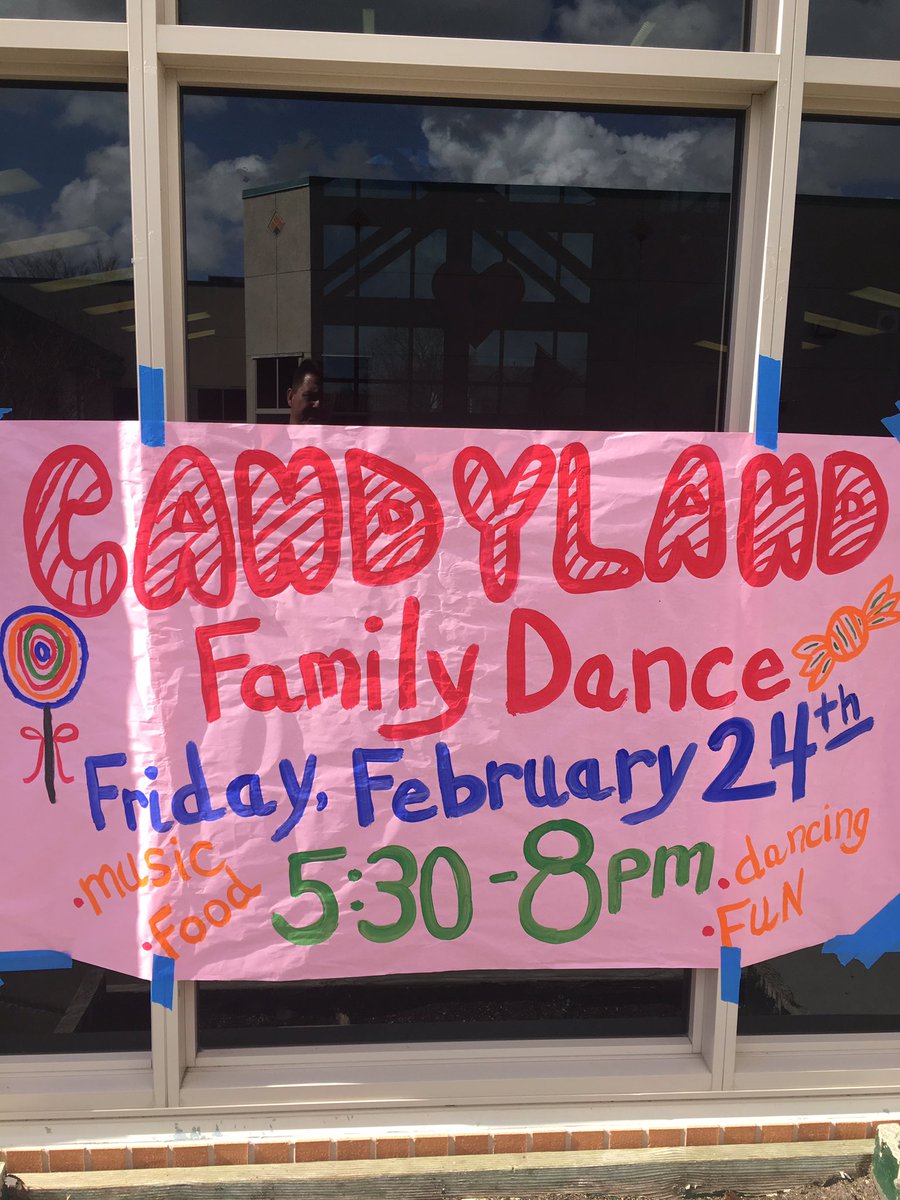 CANDYLAND
Family Dance
Friday, February 24th
5:30-8pm
•music
•Food
•dancing
•FUN